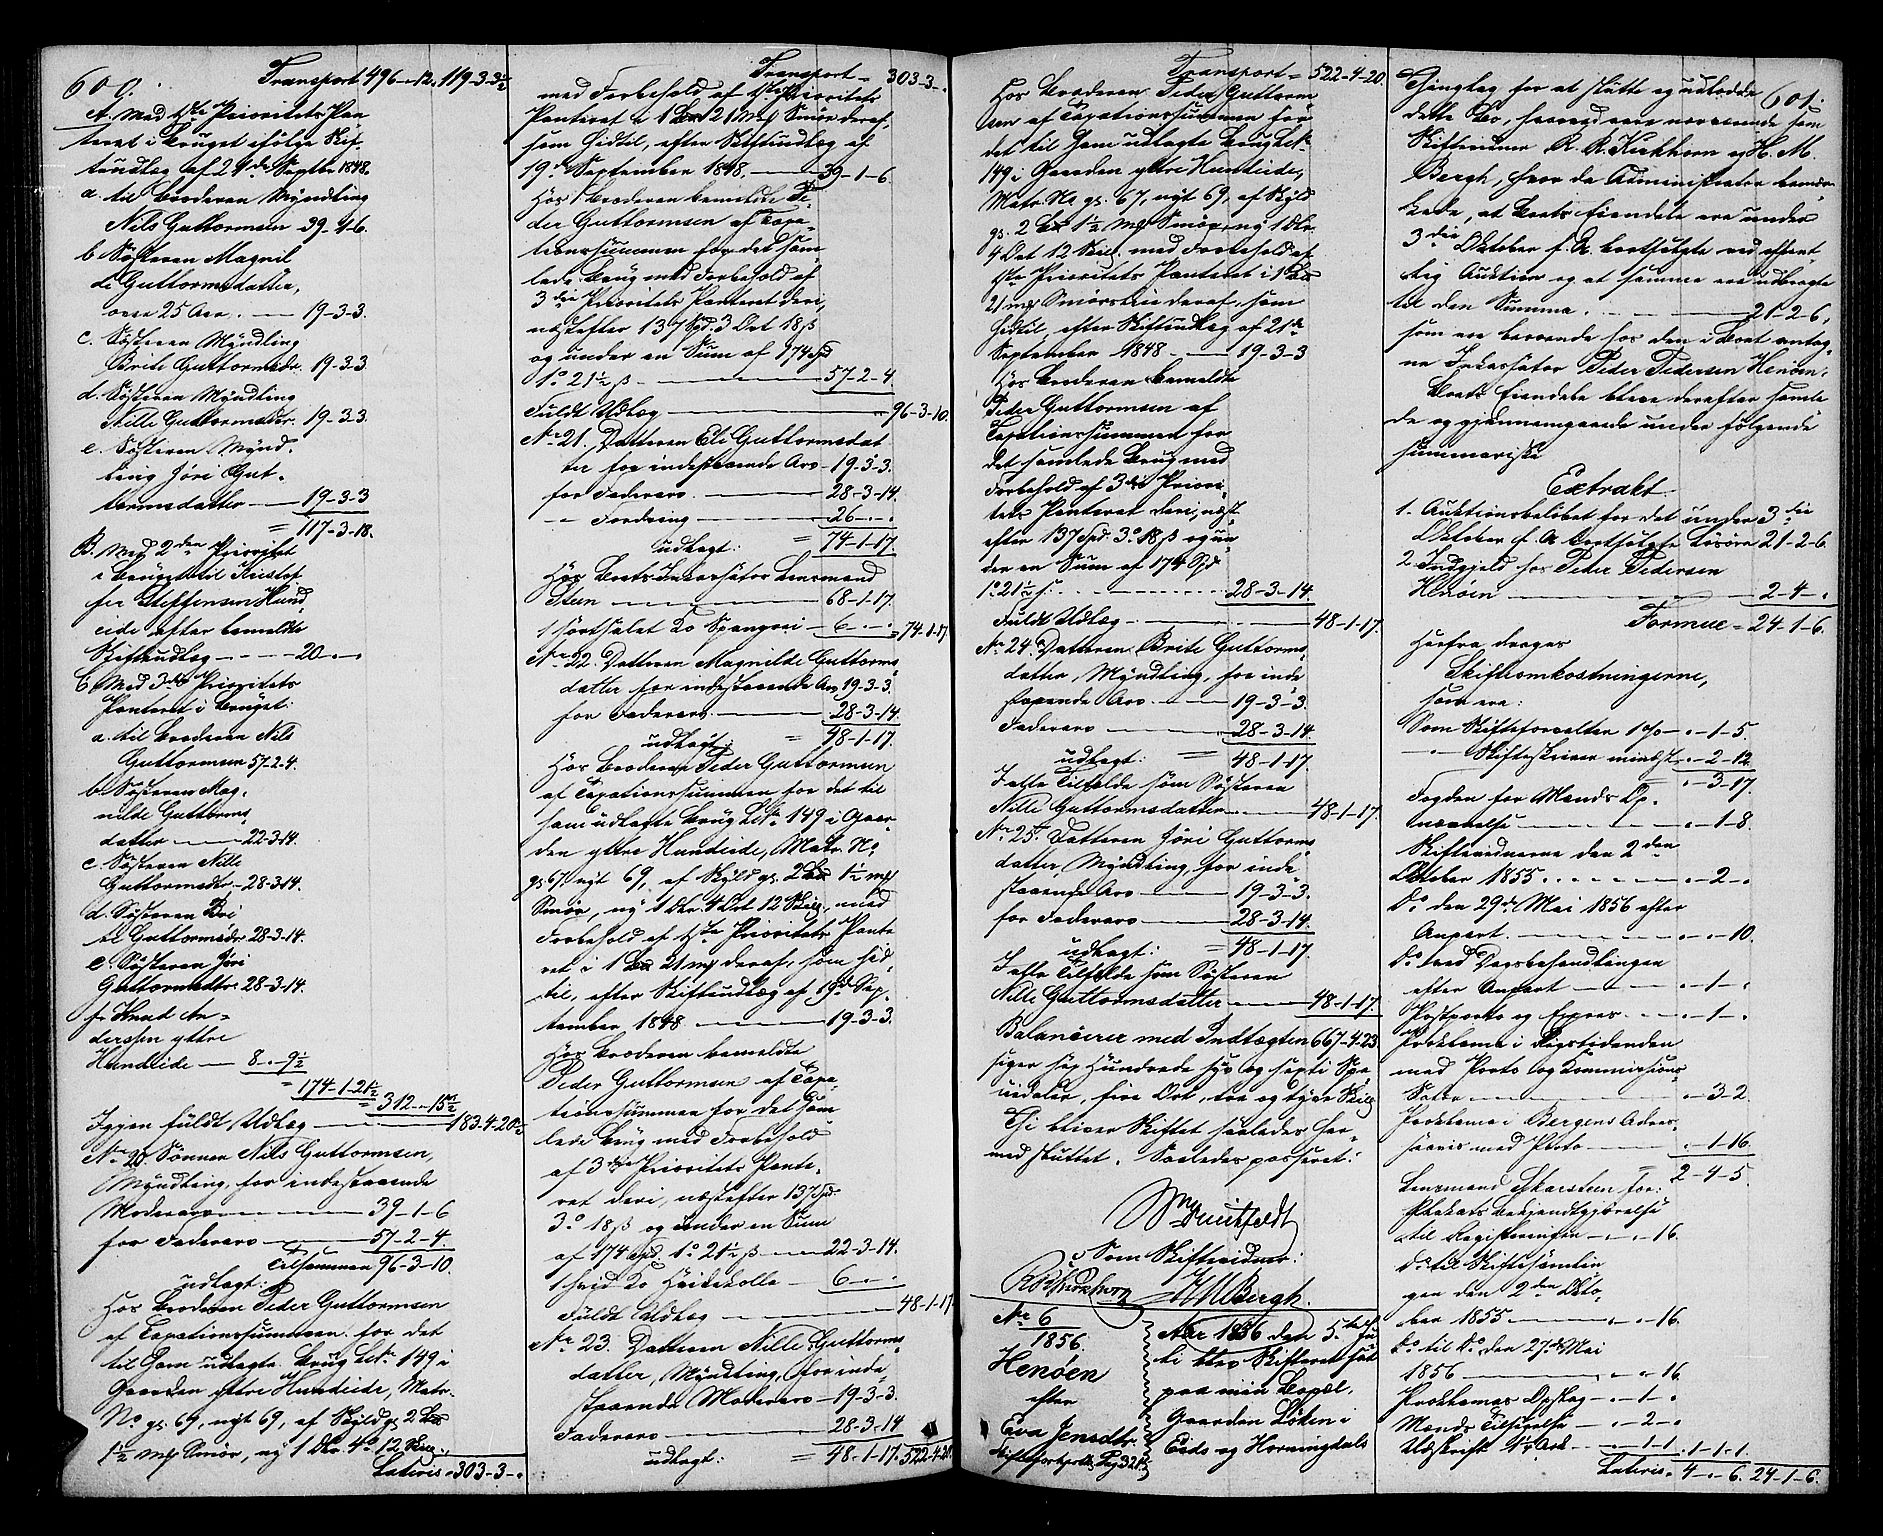 600.
Transport 496 - . - 12. 119-3-3½
A. Med 1ste Prioritets Pan
teret i Bruget ifölge Skif-
teudlæg af 21de Septbr 1848.
a. til Broderen Myndling
Nils Guttormsen 39-1-6.
b. Sösteren Magnil
de Guttormsdatter,
over 25 Aar. — 19-3-3.
c. Sösteren Myndling
Brite Guttormsdr. 19-3-3.
d. Sösteren Myndling
Nille Guttormsdr. 19-3-3.
e. Sösteren Mynd-
ling Jöri Gut-
tormsdatter — 19-3-3
= 117-3-18.
B. Med 2den Prioritet
i Bruget til Kristof
fer Steffensen Hund
eide efter bemeldte
Skifteudlæg - - - 20 - . - .
C. Med 3die Prioritets
Panteret i Bruget:
a. til Broderen Nils
Guttormsen 57-2-4.
b. Sösteren Mag-
nilde Guttorms-
datter — 22-3-14.
c. Sösteren Nille
Guttormsdtr. 28-3-14.
d. Sösteren Bri
te Guttormsdr. 28-3-14.
e. Sösteren Jöri
Guttormsdtr. 28-3-14.
f. Knud An-
derssen yttre
Hundeide — 8-.-9½
= 174-1-21½
= 312-.-15½
Igjen fuldt Udlæg — 183-4-20½
No 20. Sönnen Nils Guttormsen,
Myndling, for indestaaende
Moderarv — 39-1-6
for Faderarv — 57-2-4.
Tilsammen 96-3-10.
udlagt:
Hos Broderen Peder Guttormsen
af Taxationssummen for det
til ham udlagte Brug LNo 149 i
Gaarden yttre Hundeide, Matr.
No gl. 67, nyt 69, af Skyld gl. 2 Lb
1½ mk Smör, ny 1 Dlr. 4o 12 Skill.,
Lateris 303-3-.
Transport = 303-3-.
med Forbehold af 1ste Prioritets
Panteret i 1 Lb 21 mk Smör deraf,
som hidtil, efter Skifteudlæg af
19de September 1848. — 39-1-6.
Hos Broderen bemeldte Pe-
der Guttormsen af Taxa-
tionssummen for det sam-
lede Brug med Forbehold af
3die Prioritets Panteret deri,
næstefter 137 Spd. 3 Ort 18 ß
og under en Sum af 174 Spd
1o 21½ ß — 57-2-4
Fuldt Udlæg — 96-3-10.
No 21. Datteren Eli Guttormsdat
ter for indestaaende Arv - 19-3-3.
for Faderarv. — 28-3-14.
-"- Fordring — 26-.-.
udlagt: = 74-1-17.
Hos Boets Inkassator Lensmand
Steen — 68-1-17.
1 sortsalet Ko Spangroei — 6-.-. = 74-1-17.
No 22. Datteren Magnilde Guttorms-
datter for indestaaende Arv 19-3-3.
for Faderarv. — 28-3-14.
udlagt: = 48-1-17.
Hos Broderen Peder Guttormsen
af Taxationssummen for det til
ham udlagte Brug LNo 149 i Gaar-
den yttre Hundeide, Matr. No
gl. 67, nyt 69, af Skyld gl. 2 Lb 1½ mk
Smör, ny 1 Dlr. 4 Ort 12 Skill., med
Forbehold af 1ste Prioritets Pante
ret i 1 Lb 21 mk deraf, som hid-
til, efter Skifteudlæg af 19de Sep-
tember 1848 — 19-3-3.
Hos Broderen bemeldte
Peder Guttormsen af Taxa-
tionssummen for det sam
lede Brug med Forbehold
af 3die Prioritets Pante-
ret deri, næstefter 137 Spd.
3o 18 ß og under en Sum
af 174 Spd. 1o 21½ ß — 22-3-14.
1 hvid Ko Hvitekolle — 6-.-.
Fuldt Udlæg — 48-1-17.
No 23. Datteren Nille Guttorms-
datter, Myndling, for inde-
staaende Moderarv — 19-3-3.
Faderarv — 28-3-14
udlagt: = 48-1-17. 522-4-20.
Transport = 522-4-20.
Hos Broderen Peder Guttorm
sen af Taxationssummen for
det til ham udlagte Brug LNo
149 i Gaarden yttre Hundeide,
Matr. No gl. 67, nyt 69, af Skyld
gl. 2 Lb 1½ mk Smör, ny 1 Dlr.
4 Ort 12 Skill. med Forbehold af
1ste Prioritets Panteret i 1 Lb
21 mk Smörsleie deraf, som
hidtil, efter Skifteudlæg af 21de
September 1848 — 19-3-3
Hos Broderen bemeldte
Peder Guttormsen af
Taxationssummen for
det samlede Brug med
Forbehold af 3die Priori-
tets Panteret deri, næst-
efter 137 Spd. 3o 18 ß og un-
der en Sum af 174 Spd
1o 21½ ß. — 28-3-14.
Fuldt Udlæg — 48-1-17.
No 24. Datteren Brite Guttorms-
datter, Myndling, for inde
staaende Arv — 19-3-3.
Faderarv — 28-3-14.
udlagt: = 48-1-17.
I alle Tilfælde som Sösteren
Nille Guttormsdatter — 48-1-17.
No 25. Datteren Jöri Guttorms-
datter, Myndling, for inde
staaende Arv — 19-3-3.
for Faderarv — 28-3-14.
udlagt: = 48-1-17.
I alle Tilfælde som Sösteren
Nille Guttormsdatter — 48-1-17.
Balancerer med Indtægten 667-4-23
siger sex Hundrede syv og sexti Spe
ciedaler, fire Ort, tre og tyve Skill.
Thi bliver Skiftet saaledes her-
med sluttet. Saaledes passeret:
Som Skiftevidner:
R. R. Kirkhorn H M Bergh.
No 6
1856.
Henöen
efter
Eva Jensdtr.
Skifteprotokoll Pag 321.
Aar 1856 den 5te Ju
li blev Skifteret sat
paa min Bopæl,
Gaarden Löken i
Eids og Horningdals
601.
Thinglag for at slutte og udlodde
dette Bo, hvorved vare nærværende som
Skiftevidner R. R. Kirkhorn og H. M.
Bergh, hvor da Administrator bemær-
kede, at Boets Eiendele ere under
3die Oktober f. A. bortsolgte ved offent-
lig Auktion og at samme ere udbragte
til den Summa. — 21-2-6,
som ere beroende hos den i Boet antag-
ne Inkassator Peder Pedersen Henöen.
Boets Eiendele bleve derefter samle
de og gjennemgaaede under fölgende
summariske
Extrakt
1. Auktionsbelöbet for det under 3die
Oktober f. A. bortsolgte Lösöre 21-2-6.
2. Indgjeld hos Peder Pedersen
Henöen — 2-4-.
Formue = 24-1-6.
Herfra drages
Skifteomkostningerne,
som ere:
Som Skifteforvalter 1 % — . - 1-5.
-"- Skifteskriver mindst - . -2-12
= . -3-17.
Fogden for Mænds Op-
nævnelse — . -1-8.
Skiftevidnerne den 2den
Oktober 1855 — . -2- .
Do den 29de Mai 1856 efter
Anpart. — . - . -10.
Do ved Dagsbehandlingen
efter Anpart — . -1- .
Postporto og Expres. - . -1- .
Proklama i Rigstidenden
med Porto og Kommissions-
Salær — . -3-2.
Proklama i Bergens Adres-
seavis med Porto — . -1-16.
= 2-4-5.
Lensmand Skarsteen for:
Plakats bekjendtgjörelse
til Registreringen — . - . -16.
do til Skiftesamlin
gen den 2den Okto-
ber 1855 — . - . -16.
Do til Do den 27de Mai
1856 — . - . -16.
Proklamas Opslag — . -1- .
Mænds Tilsigelse — . -2- .
Udskrift 1½ Ark — . -1-1. . 1-1-1.
Lateris. 4-.-6. 24-1-6.